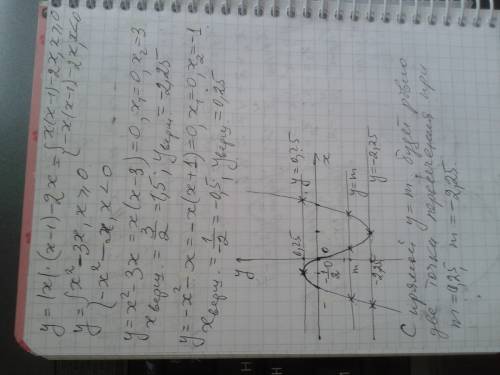 y=|x|·(x-1)-2x={x(x-1)-2x, x≥0
{-x(x-1)-2x, x<0
y={x²-3x, x≥0
{-x²-x, x<0
y=x²-3x=x(x-3)=0, x₁=0, x₂=3
x верш. = 3/2 = 1,5, y верш. = -2,25
y=-x²-x=-x(x+1)=0, x₁=0, x₂=-1
x верш. = 1/-2 = -0,5, y верш. = 0,25
y
0,25
y=0,25
x
-1
-1/2
0
m
y=m
-2,25
y=-2,25
С прямой y=m будет ровно
две точки пересечения при
m=0,25, m=-2,25